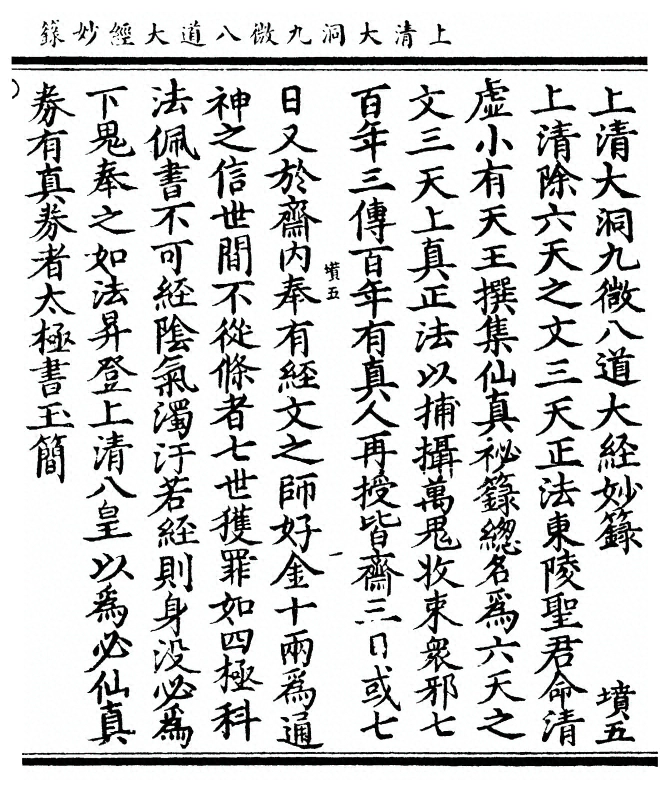 上清大洞九微八道大經妙籙
上清大洞九微八道大経妙籙　墳五
上清除六天之文三天正法東陵聖君命清
虛小有天王撰集仙真祕籙緫名為六天之
文三天上真正法以捕攝萬鬼收束衆邪七
百年三傳百年有真人再授皆齋三日或七
墳五
一
日又於齋內奉有経文之師好金十兩為通
神之信世間不從條者七世獲罪如四極科
法佩書不可経隂氣濁汙若経則身没必為
下鬼奉之如法昇登上清八皇以為必仙真
劵有真劵者太極書玉簡